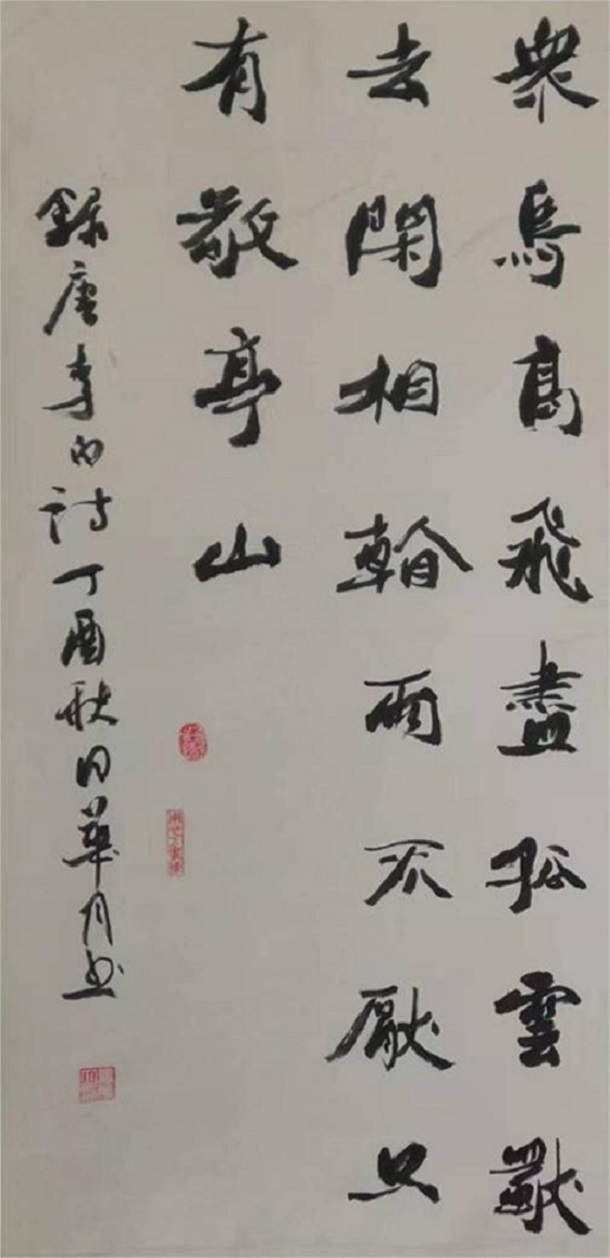 衆鳥高飛盡孤雲獨
去閑相看兩不厭只
有敬亭山
録唐李白詩丁酉秋日華月书